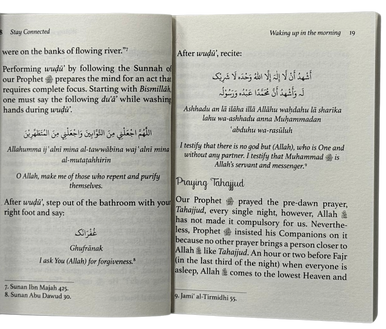 8 Stay Connected
were on the banks of flowing river."⁷
Performing wuḍū' by following the Sunnah of
our Prophet ﷺ prepares the mind for an act that
requires complete focus. Starting with Bismillāh,
one must say the following du'ā' while washing
hands during wuḍū'.
اَللّٰهُمَّ اجْعَلْنِي مِنَ التَّوَّابِينَ وَاجْعَلْنِي مِنَ الْمُتَطَهِّرِيْنَ
Allahumma ij'alni mina al-tawwābina waj'alni mina
al-mutaṭahhirin
O Allah, make me of those who repent and purify
themselves.
After wuḍū', step out of the bathroom with your
right foot and say:
غُفْرَانَكَ
Ghufrānak
I ask You (Allah) for forgiveness.⁸
7. Sunan Ibn Majah 425.
8. Sunan Abu Dawud 30.
Waking up in the morning 19
After wuḍū', recite:
أَشْهَدُ أَنْ لَّا إِلٰهَ إِلَّا اللّٰهُ وَحْدَهُ لَا شَرِيْكَ
لَهُ وَأَشْهَدُ أَنَّ مُحَمَّدًا عَبْدُهُ وَرَسُولُهُ
Ashhadu an lā ilāha illā Allāhu waḥdahu lā sharika
lahu wa-ashhadu anna Muḥammadan
'abduhu wa-rasūluh
I testify that there is no god but (Allah), who is One and
without any partner. I testify that Muhammad ﷺ is
Allah's servant and messenger.⁹
Praying Tahajjud
Our Prophet ﷺ prayed the pre-dawn prayer,
Tahajjud, every single night, however, Allah ﷻ
has not made it compulsory for us. Neverthe-
less, Prophet ﷺ insisted his Companions on it
because no other prayer brings a person closer to
Allah ﷻ like Tahajjud. An hour or two before Fajr
(in the last third of the night) when everyone is
asleep, Allah ﷻ comes to the lowest Heaven and
9. Jami' al-Tirmidhi 55.